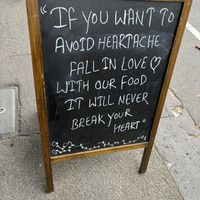 "IF YOU WANT TO
AVOID HEARTACHE
FALL IN LOVE ♡
WITH OUR FOOD
IT WILL NEVER
BREAK YOUR
HEART"